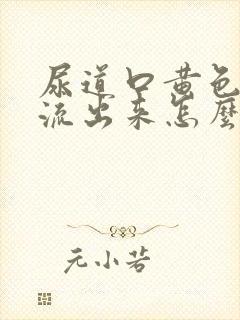 尿道口黄色
流出来怎麼
元小若